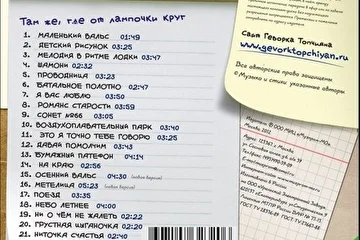 Там же, где от лампочки круг
1. Маленький вальс 01:49
2. Детский рисунок 03:25
3. Мелодия в ритме лодки 03:47
4. Шамони 02:32
5. Проводница 03:23
6. Батальное полотно 02:47
7. Я вас люблю 03:50
8. Романс старости 03:59
9. Сонет №66 03:05
10. Воздухоплавательный парк 03:40
11. Это я точно тебе говорю 03:25
12. Давай помолчим 03:43
13. Бумажный патефон 04:14
14. На краю 02:56
15. Осенний вальс 04:30
16. Метелица 05:23
17. Поезд 03:35
18. Небо летнее 04:00
19. Ни о чём не жалеть 02:22
20. Грустная цыганочка 02:20
21. Ниточка счастья 02:40
Сайт Геворка Топчияна
www.gevorktopchiyan.ru
Все авторские права защищены
©Музыка и стихи указанные авторы